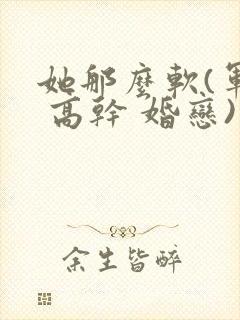 她那麼軟(軍
高幹 婚戀)
余生皆醉